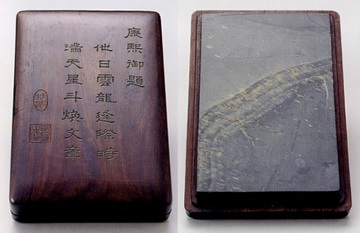 康熙御題
他日雲龍逢際時
滿天星斗煥文章